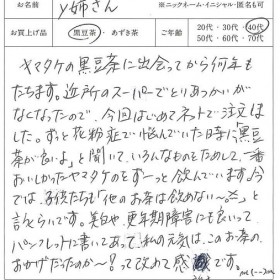 お名前 y姉さん ※ニックネーム・イニシャル・匿名も可
お買上げ品 黒豆茶・あずき茶 ご年齢 20代・30代・40代
50代・60代・70代
ヤマタケの黒豆茶に出会ってから何年も
たちます。近所のスーパーでとりあつかいが
なくなったので、今回はじめてネットで注文しま
した。ずっと花粉症で悩んでいた時に「黒豆
茶が良いよ」と聞いて、いろんなものをためして、一番
おいしかったヤマタケのをずーっと飲んでいます。今
では、子供たちも「他のお茶は飲めない〜」
と言うくらいです。美白や、更年期障害にも良いって
パンフレットに書いてあって、私の元気は、このお茶の
おかげだったのかー?って改めて感 です。